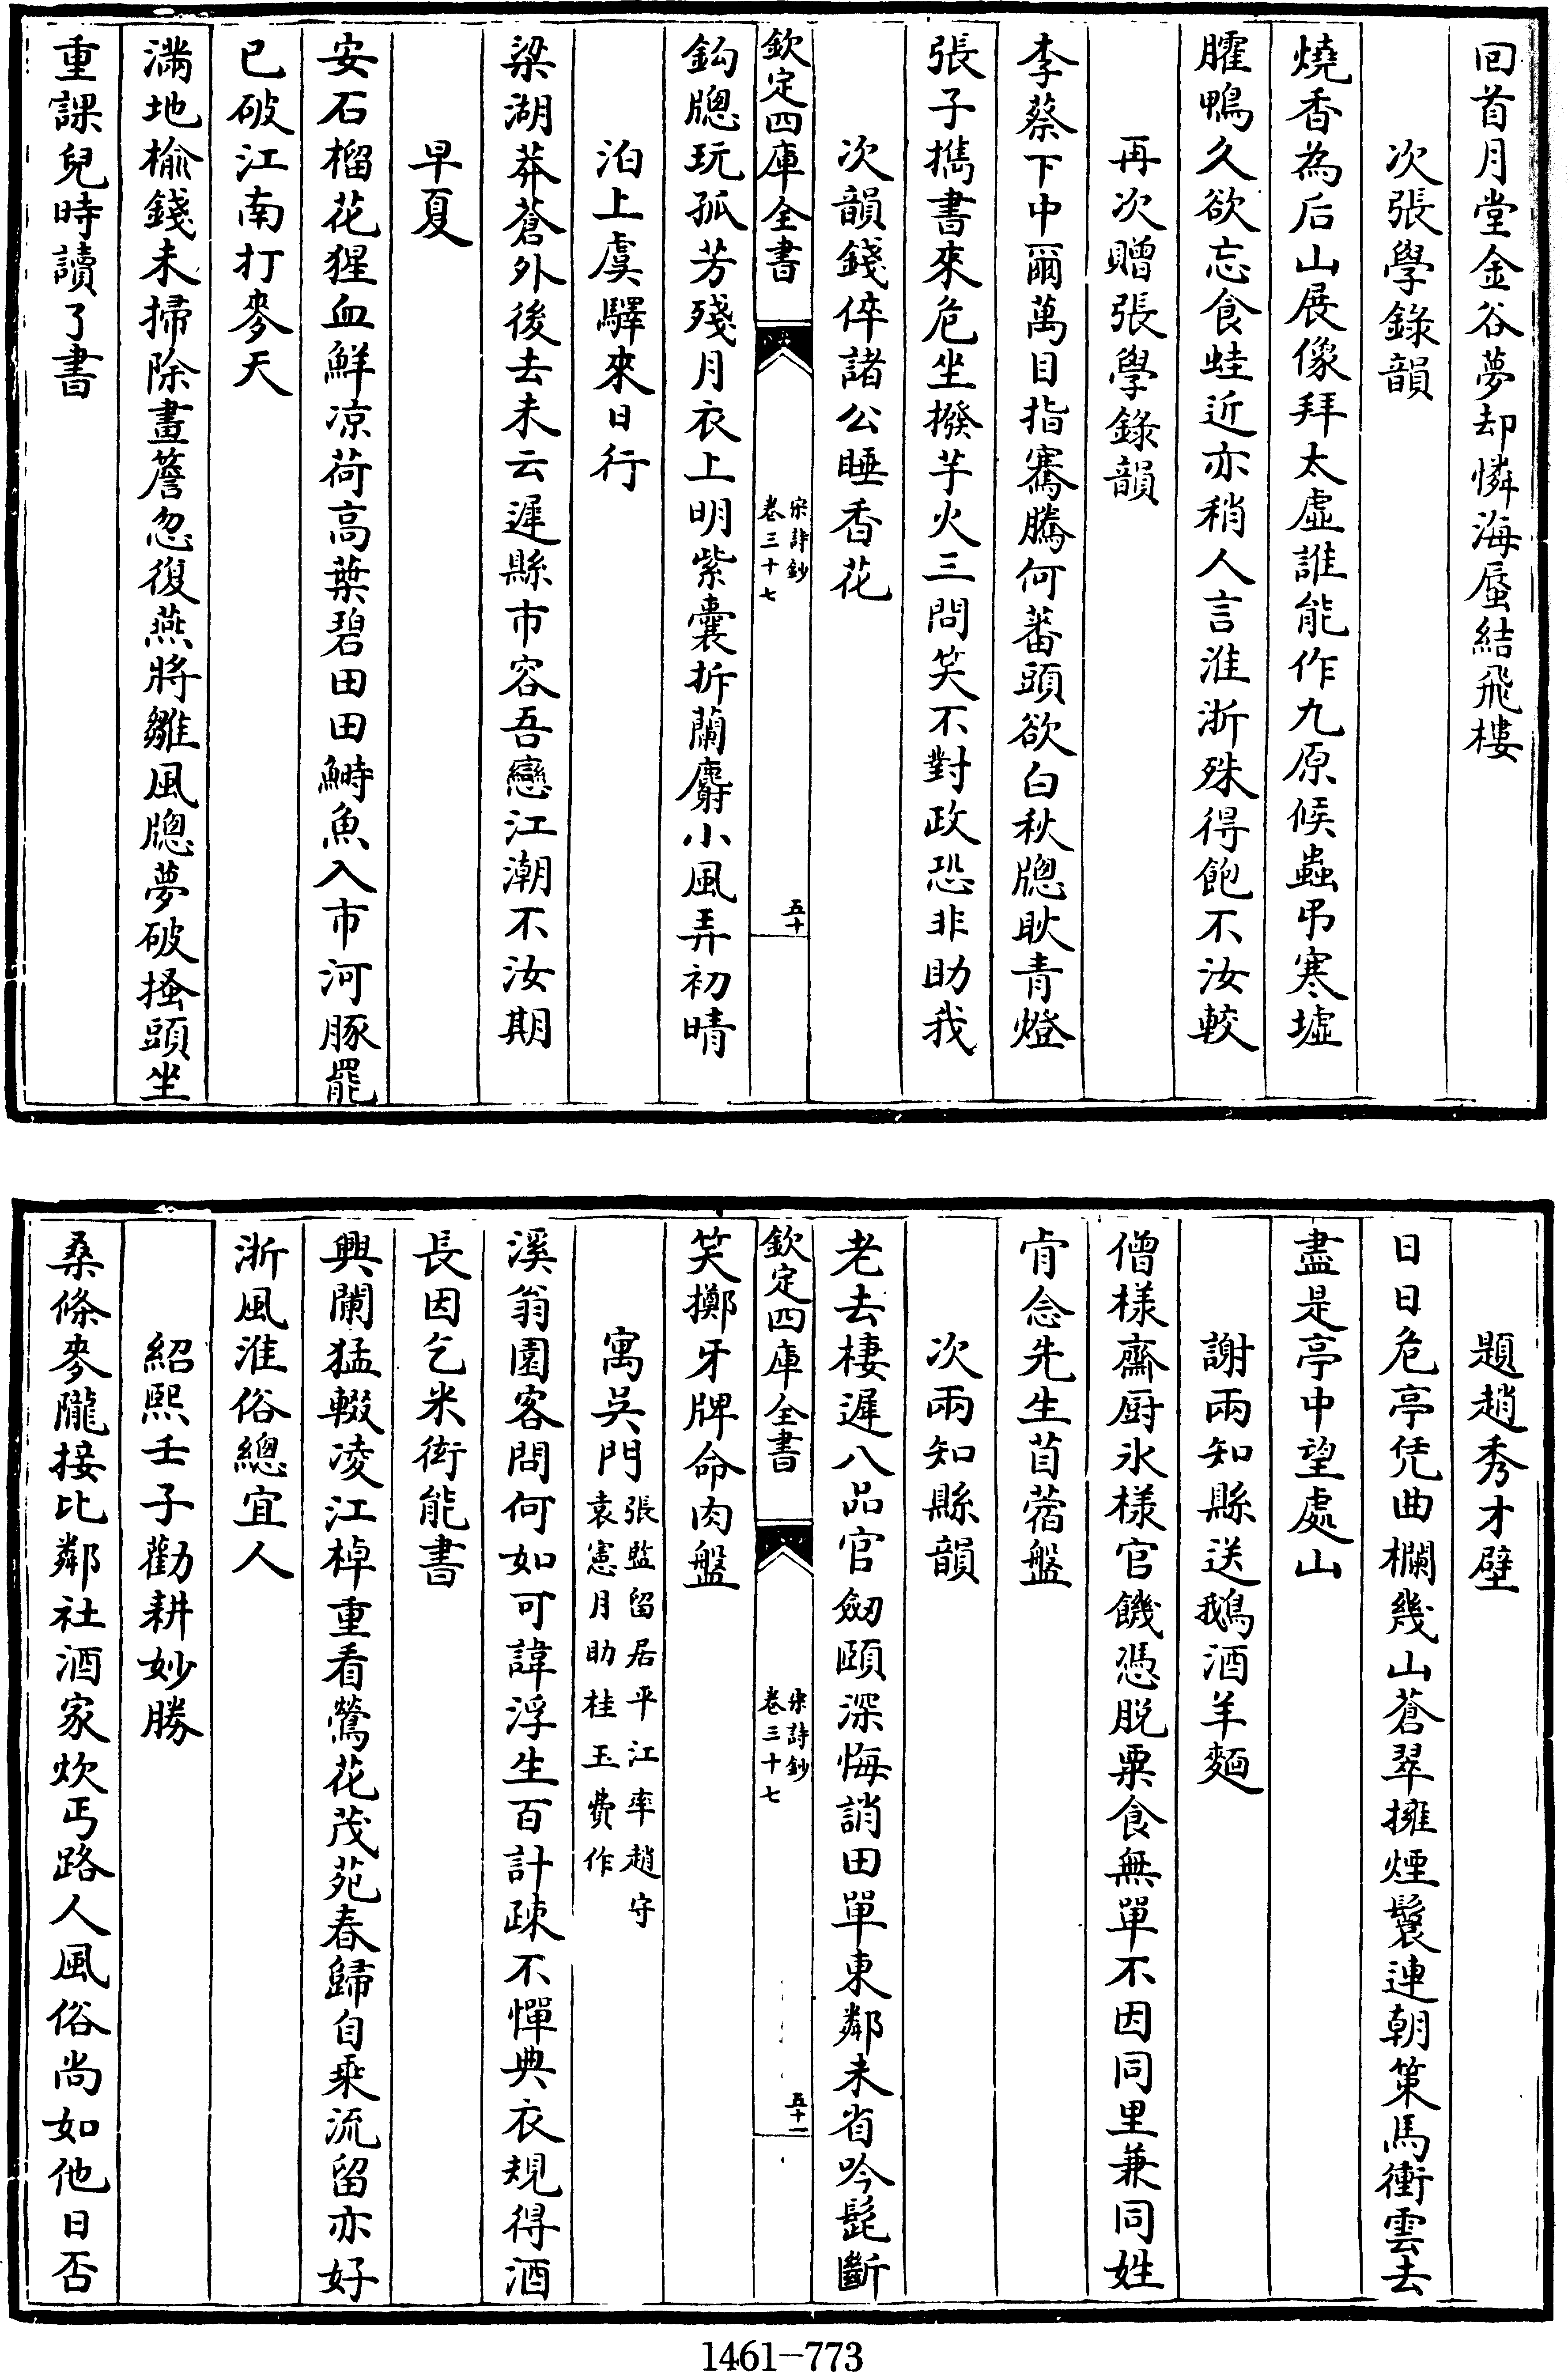 回首月堂金谷夢却憐海蜃結飛樓
次張學錄韻
燒香為后山展像拜太虛誰能作九原候蟲弔寒墟
臛鴨久欲忘食蛙近亦稍人言淮浙殊得飽不汝較
再次贈張學錄韻
李蔡下中爾萬目指騫騰何蕃頭欲白秋牕耿青燈
張子攜書來危坐撥芋火三問笑不對政恐非助我
次韻錢倅諸公睡香花
欽定四庫全書
宋詩鈔
卷三十七
五十
鈎牕玩孤芳殘月衣上明紫囊拆蘭麝小風弄初晴
泊上虞驛來日行
梁湖莽蒼外後去未云遲縣市容吾戀江潮不汝期
早夏
安石榴花猩血鮮凉荷高葉碧田田鰣魚入市河豚罷
已破江南打麥天
滿地榆錢未掃除畫簷忽復燕將雛風牕夢破搔頭坐
重課兒時讀了書
題趙秀才壁
日日危亭凭曲欄幾山蒼翠擁煙鬟連朝策馬衝雲去
盡是亭中望處山
謝兩知縣送鵝酒羊麵
僧樣齋厨氷樣官饑憑脫粟食無單不因同里兼同姓
肯念先生苜蓿盤
次兩知縣韻
老去棲遲八品官劒頤深悔誚田單東鄰未省吟髭斷
欽定四庫全書
宋詩鈔
卷三十七
五十一
笑擲牙牌命肉盤
寓吳門
張監留居平江率趙守
袁憲月助桂玉費作
溪翁園客問何如可諱浮生百計疎不憚典衣規得酒
長因乞米衒能書
興闌猛輟凌江棹重看鶯花茂苑春歸自乘流留亦好
浙風淮俗總宜人
紹熙壬子勸耕妙勝
桑條麥隴接比鄰社酒家炊丐路人風俗尚如他日否
1461-773